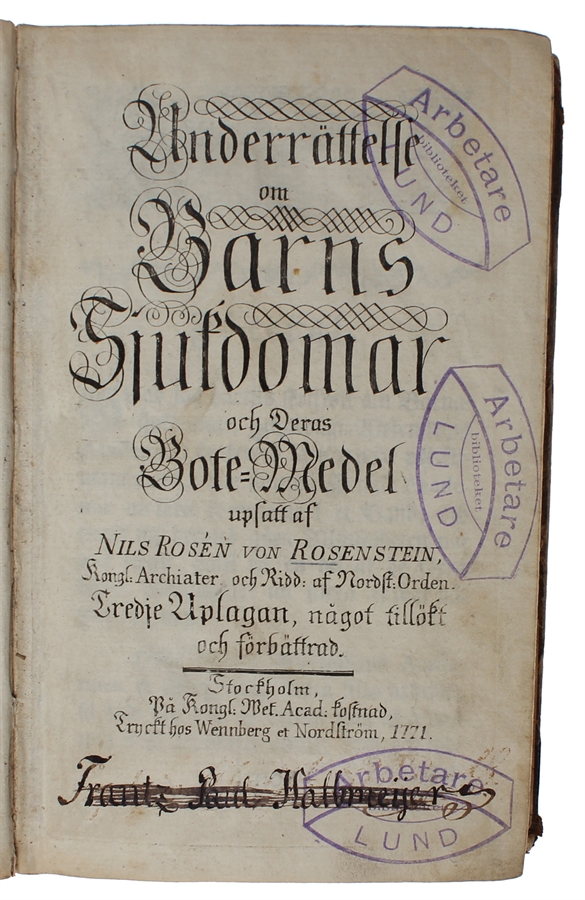 Underrättelse
om
Barns
Sjukdomar
och Deras
Bote=Medel
upsatt af
NILS ROSÉN VON ROSENSTEIN,
Kongl: Archiater och Ridd: af Nordst: Orden.
Tredje Uplagan, något tillökt
och förbättrad.
Stockholm,
På Kongl: Wet. Acad: kostnad,
Tryckt hos Wennberg et Nordström, 1771.
Frantz Paul Halbmeijer
Arbetare
biblioteket
LUND
Arbetare
biblioteket
LUND
Arbetare
LUND